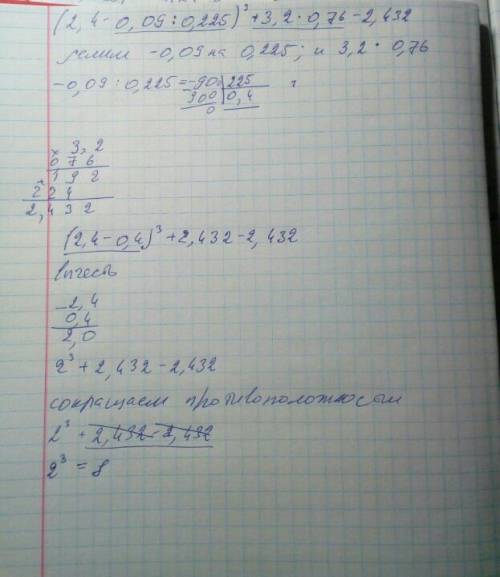 (2,4 - 0,09 : 0,225)³ + 3,2 · 0,76 - 2,432
делим -0,09 на 0,225; и 3,2 · 0,76
-0,09 : 0,225 = -90 | 225
900 | 0,4
0
× 3,2
0 7 6
1 9 2
2 2 4
2,4 3 2
(2,4 - 0,4)³ + 2,432 - 2,432
вычесть
- 2,4
0,4
2,0
2³ + 2,432 - 2,432
сокращаем противоположностьи
2³ + 2,432 - 2,432
2³ = 8